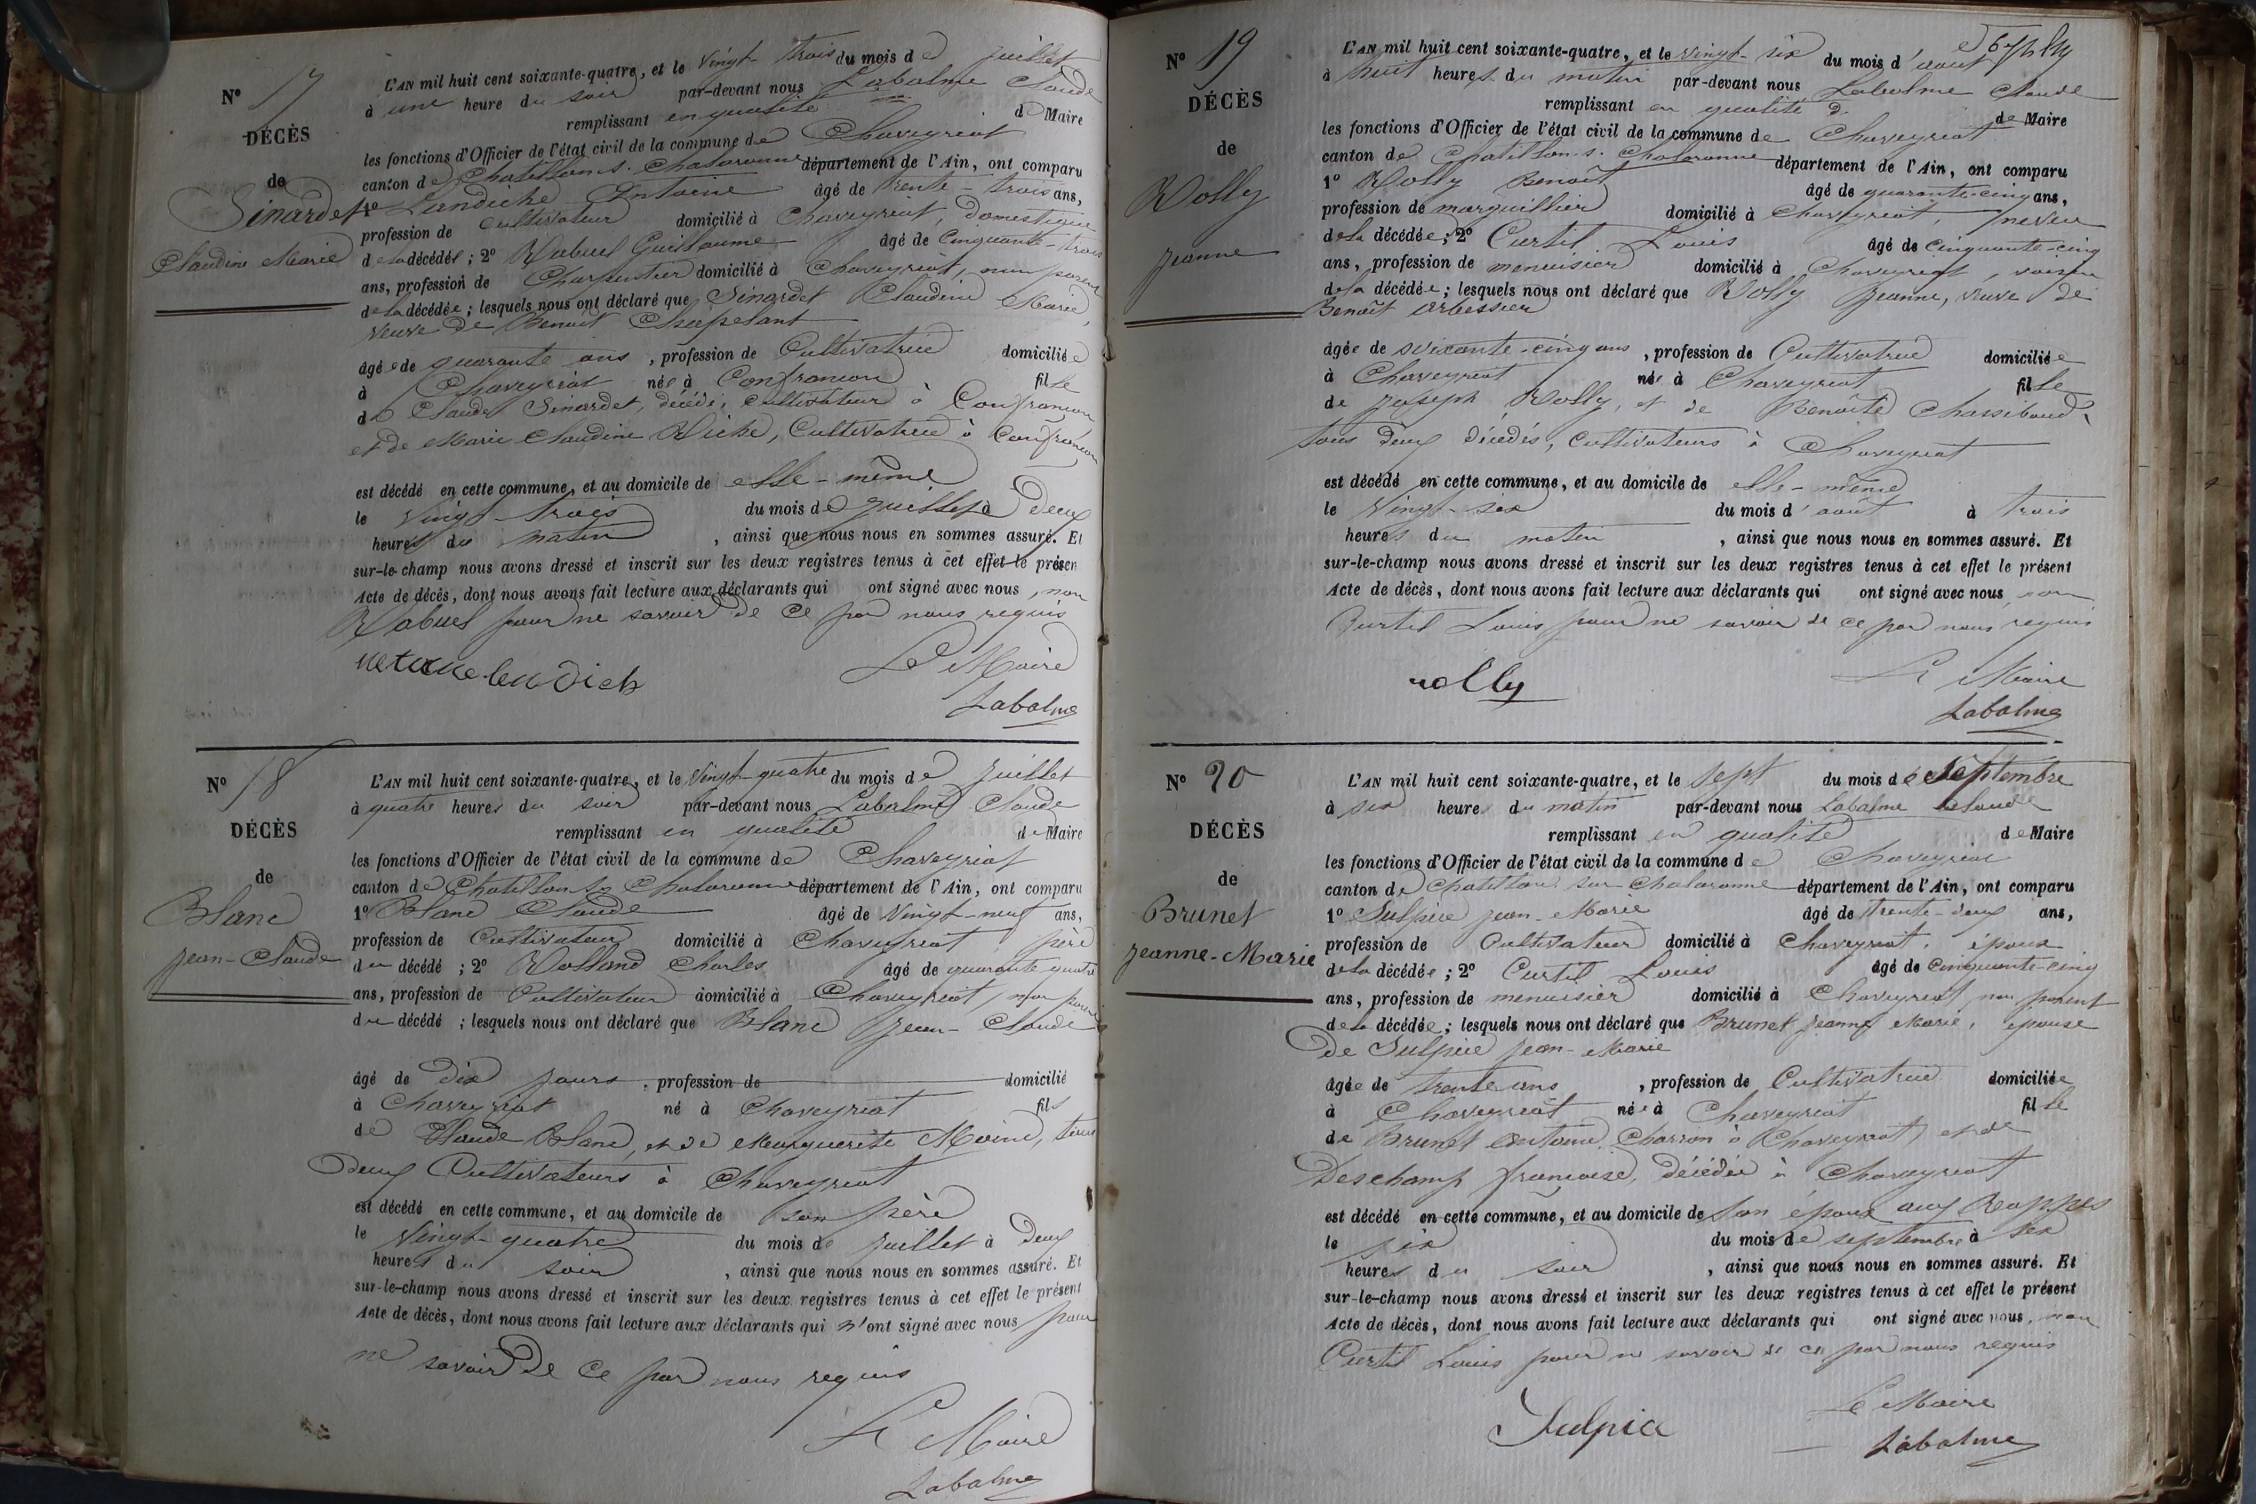 N° 17
DÉCÈS
de
Sinardet
Claudine Marie
L'AN mil huit cent soixante-quatre, et le vingt-trois du mois de juillet
à une heure du soir par-devant nous Labalme Claude
remplissant en qualité de Maire
les fonctions d'Officier de l'état civil de la commune de Chaveyriat
canton de Chatillon s. Chalaronne département de l'Ain, ont comparu
1° Landiche Antoine âgé de trente-trois ans,
profession de cultivateur domicilié à Chaveyriat, domestique
de la décédée ; 2° Rabuel Guillaume âgé de cinquante-trois
ans, profession de Charpentier domicilié à Chaveyriat, non parent
de la décédée ; lesquels nous ont déclaré que Sinardet Claudine Marie,
veuve de Benoît Chapelant
âgée de quarante ans, profession de Cultivatrice domiciliée
à Chaveyriat née à Confrançon fille
de Claude Sinardet, décédé, cultivateur à Confrançon
et de Marie Claudine Riche, Cultivatrice à Confrançon
est décédé en cette commune, et au domicile de elle-même
le vingt-trois du mois de juillet à deux
heures du matin, ainsi que nous nous en sommes assuré. Et
sur-le-champ nous avons dressé et inscrit sur les deux registres tenus à cet effet le présen
Acte de décès, dont nous avons fait lecture aux déclarants qui ont signé avec nous, non
Rabuel pour ne savoir de ce par nous requis
Le Maire
Labalme
N° 18
DÉCÈS
de
Blanc
Jean-Claude
L'AN mil huit cent soixante-quatre, et le vingt-quatre du mois de juillet
à quatre heures du soir par-devant nous Labalme Claude
remplissant en qualité de Maire
les fonctions d'Officier de l'état civil de la commune de Chaveyriat
canton de Chatillon sr Chalaronne département de l'Ain, ont comparu
1° Blanc Claude âgé de vingt-neuf ans,
profession de Cultivateur domicilié à Chaveyriat, père
du décédé ; 2° Rolland Charles âgé de quarante-quatre
ans, profession de Cultivateur domicilié à Chaveyriat, non parent
du décédé ; lesquels nous ont déclaré que Blanc Jean-Claude
âgé de dix jours, profession de domicilié
à Chaveyriat né à Chaveyriat fils
de Claude Blanc, et de Marguerite Moine, tous
deux Cultivateurs à Chaveyriat
est décédé en cette commune, et au domicile de son père
le vingt-quatre du mois de juillet à deux
heures du soir, ainsi que nous nous en sommes assuré. Et
sur-le-champ nous avons dressé et inscrit sur les deux registres tenus à cet effet le présent
Acte de décès, dont nous avons fait lecture aux déclarants qui n'ont signé avec nous pour
ne savoir de ce par nous requis
Le Maire
Labalme
N° 19
DÉCÈS
de
Rolly
Jeanne
L'AN mil huit cent soixante-quatre, et le vingt-six du mois d'août
à huit heures du matin par-devant nous Labalme Claude
remplissant en qualité de Maire
les fonctions d'Officier de l'état civil de la commune de Chaveyriat
canton de Chatillon s. Chalaronne département de l'Ain, ont comparu
1° Rolly Benoît âgé de quarante-cinq ans,
profession de marguillier domicilié à Chaveyriat, neveu
de la décédée ; 2° Curtil Louis âgé de cinquante-cinq
ans, profession de menuisier domicilié à Chaveyriat, voisin
de la décédée ; lesquels nous ont déclaré que Rolly Jeanne, veuve de
Benoît Arbessier
âgée de soixante-cinq ans, profession de Cultivatrice domiciliée
à Chaveyriat née à Chaveyriat fille
de Joseph Rolly, et de Benoîte Chassiboud,
tous deux décédés, cultivateurs à Chaveyriat
est décédé en cette commune, et au domicile de elle-même
le vingt-six du mois d'août à trois
heures du matin, ainsi que nous nous en sommes assuré. Et
sur-le-champ nous avons dressé et inscrit sur les deux registres tenus à cet effet le présent
Acte de décès, dont nous avons fait lecture aux déclarants qui ont signé avec nous, non
Curtil Louis pour ne savoir de ce par nous requis
rolly Le Maire
Labalme
N° 20
DÉCÈS
de
Brunet
Jeanne-Marie
L'AN mil huit cent soixante-quatre, et le sept du mois de septembre
à six heures du matin par-devant nous Labalme Claude
remplissant en qualité de Maire
les fonctions d'Officier de l'état civil de la commune de Chaveyriat
canton de Chatillon sur Chalaronne département de l'Ain, ont comparu
1° Sulpice Jean-Marie âgé de trente-deux ans,
profession de Cultivateur domicilié à Chaveyriat, époux
de la décédée ; 2° Curtil Louis âgé de cinquante-cinq
ans, profession de menuisier domicilié à Chaveyriat, non parent
de la décédée ; lesquels nous ont déclaré que Brunet Jeanne Marie, épouse
de Sulpice Jean-Marie
âgée de trente ans, profession de Cultivatrice domiciliée
à Chaveyriat née à Chaveyriat fille
de Brunet Antoine, Charron à Chaveyriat, et de
Deschamp françoise, décédée à Chaveyriat
est décédé en cette commune, et au domicile de son époux aux Rappes
le six du mois de septembre à six
heures du soir, ainsi que nous nous en sommes assuré. Et
sur-le-champ nous avons dressé et inscrit sur les deux registres tenus à cet effet le présent
Acte de décès, dont nous avons fait lecture aux déclarants qui ont signé avec nous, non
Curtil Louis pour ne savoir de ce par nous requis
Sulpice Le Maire
Labalme